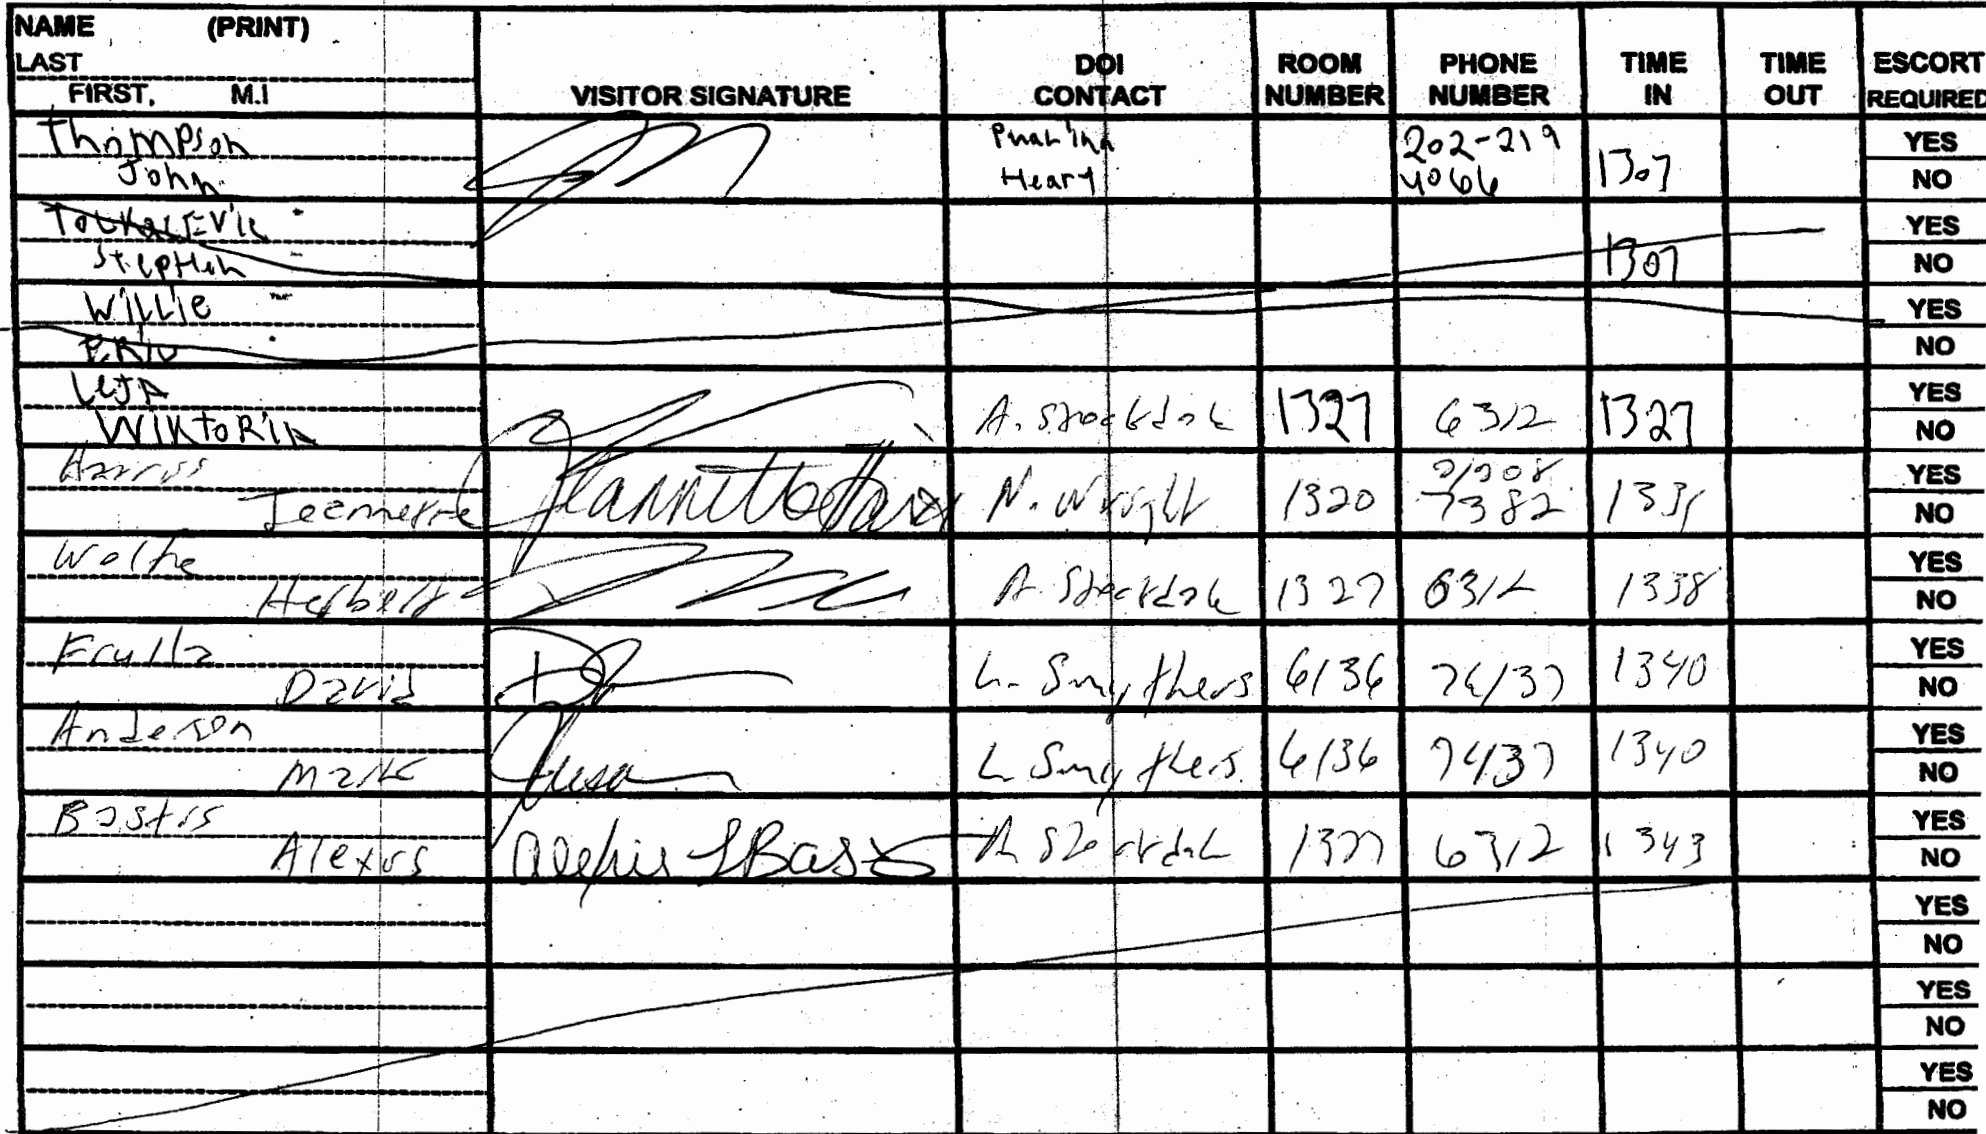 NAME (PRINT)
LAST
FIRST, M.I
VISITOR SIGNATURE
DOI CONTACT
ROOM NUMBER
PHONE NUMBER
TIME IN
TIME OUT
ESCORT REQUIRED
Thompson
John
Heart
202-219
4066
1307
YES
NO
Stephen
1307
YES
NO
WILLIE
ERIC
YES
NO
WIKTORIA
A. Stockdale 1327 6312 1327
YES
NO
Harris
Jeannette
Jeannette Harris
N. Wright 1320
7382
YES
NO
Wolfe
Herbert
A. Stockdale 1327 6312 1338
YES
NO
Frulla
David
L. Smythers 6136 1340
YES
NO
Anderson
Mark
L Smythers 6136 1340
YES
NO
Bastis
Alexus
Alexis Bas
A Stockdale 1327 6312 1343
YES
NO
YES
NO
YES
NO
YES
NO